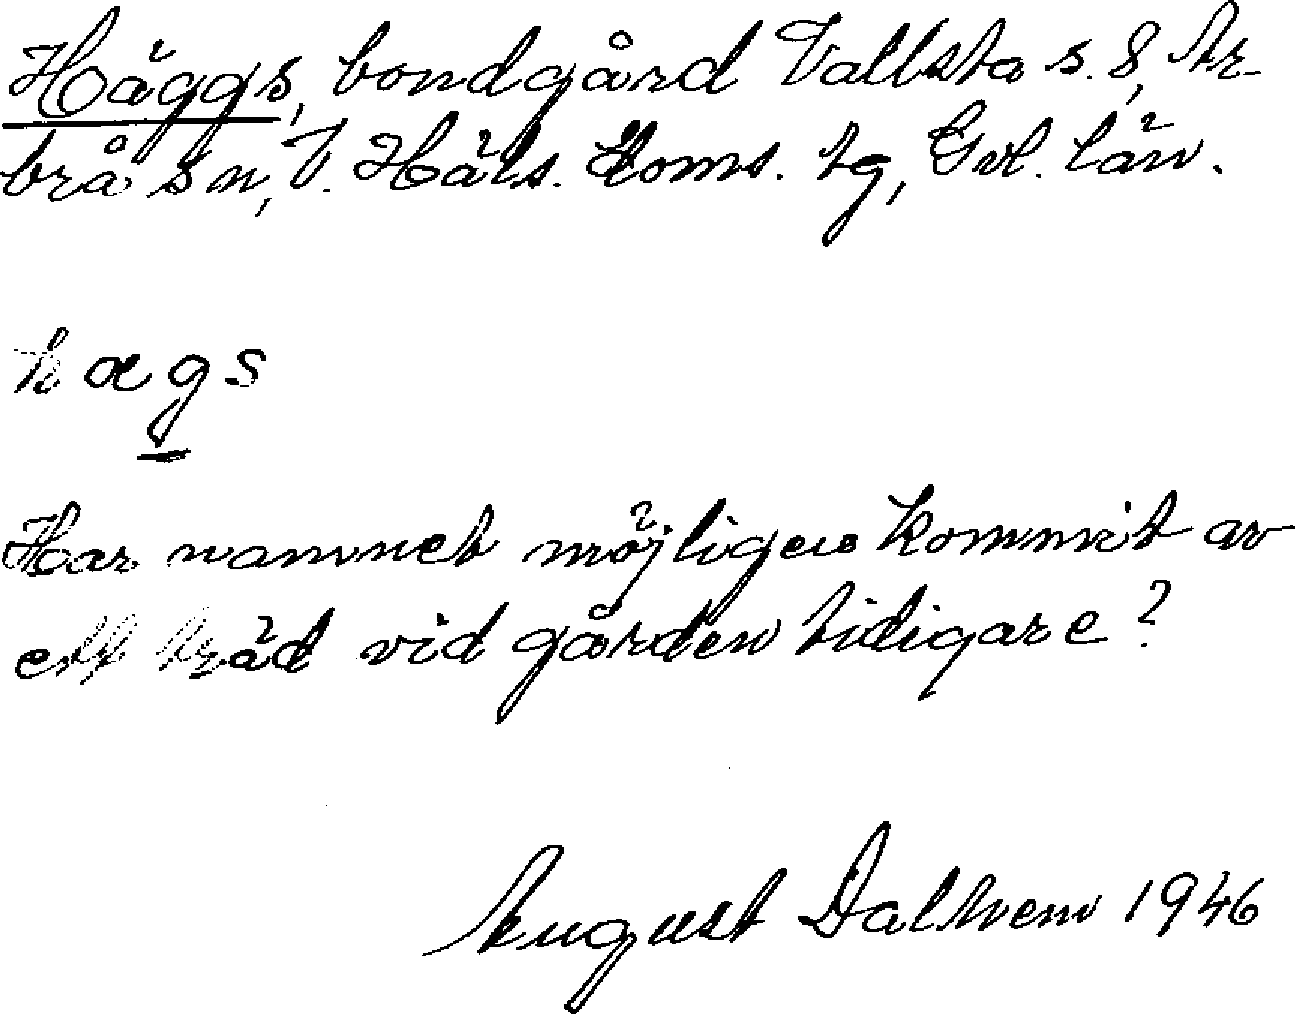 Häggs, bondgård Vallsta s. 8, Ar-
brå sn, V. Häls. Doms. tg, Gvl. län.
hægs
Har namnet möjligen kommit av
ett träd vid gården tidigare?
August Dalhem 1946